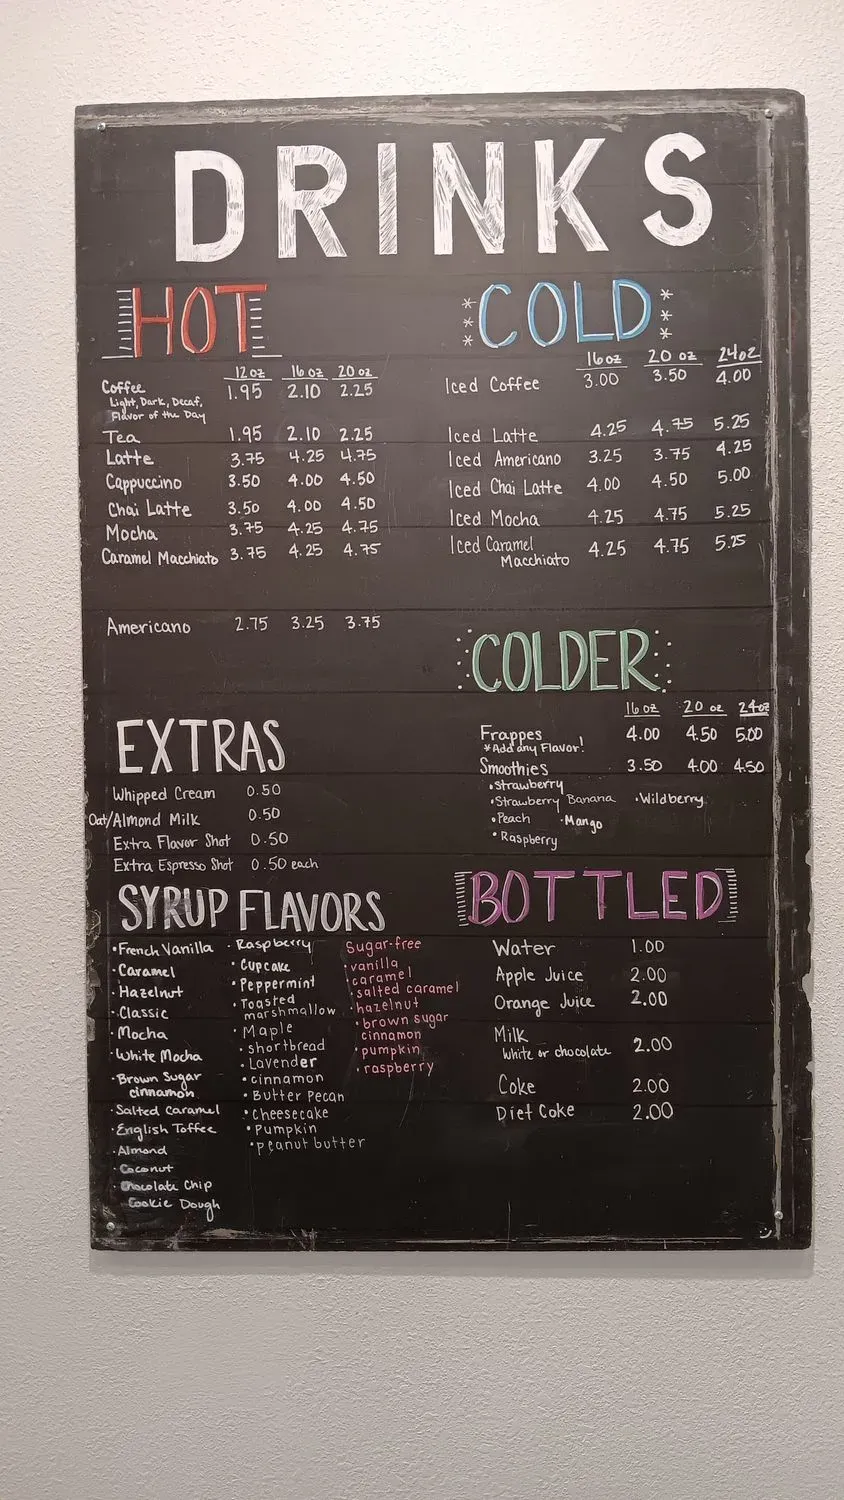 DRINKS
HOT
12oz 16 oz 20 oz
Coffee 1.95 2.10 2.25
Light, Dark, Decaf,
Flavor of the Day
Tea 1.95 2.10 2.25
Latte 3.75 4.25 4.75
Cappuccino 3.50 4.00 4.50
Chai Latte 3.50 4.00 4.50
Mocha 3.75 4.25 4.75
Caramel Macchiato 3.75 4.25 4.75
Americano 2.75 3.25 3.75
COLD
16oz 20 oz 24oz
Iced Coffee 3.00 3.50 4.00
Iced Latte 4.25 4.75 5.25
Iced Americano 3.25 3.75 4.25
Iced Chai Latte 4.00 4.50 5.00
Iced Mocha 4.25 4.75 5.25
Iced Caramel
Macchiato 4.25 4.75 5.25
COLDER
16 oz 20 oz 24oz
Frappes 4.00 4.50 5.00
*Add any Flavor!
Smoothies 3.50 4.00 4.50
•Strawberry
•Strawberry Banana •Wildberry
•Peach •Mango
•Raspberry
EXTRAS
Whipped Cream 0.50
Oat/Almond Milk 0.50
Extra Flavor Shot 0.50
Extra Espresso Shot 0.50 each
SYRUP FLAVORS
•French Vanilla
•Caramel
•Hazelnut
•Classic
•Mocha
•White Mocha
•Brown Sugar
cinnamon
•Salted Caramel
•English Toffee
•Almond
•Coconut
•Chocolate Chip
Cookie Dough
•Raspberry
•Cupcake
•Peppermint
•Toasted
marshmallow
•Maple
•shortbread
•Lavender
•cinnamon
•Butter Pecan
•Cheesecake
•Pumpkin
•peanut butter
Sugar-free
•vanilla
•caramel
•salted caramel
•hazelnut
•brown sugar
cinnamon
•pumpkin
•raspberry
BOTTLED
Water 1.00
Apple Juice 2.00
Orange Juice 2.00
Milk
White or chocolate 2.00
Coke 2.00
Diet Coke 2.00